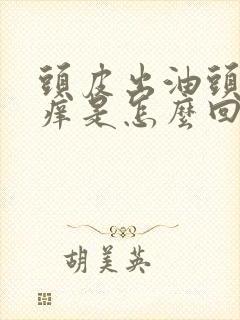 頭皮出油頭
癢是怎麼回
胡美英